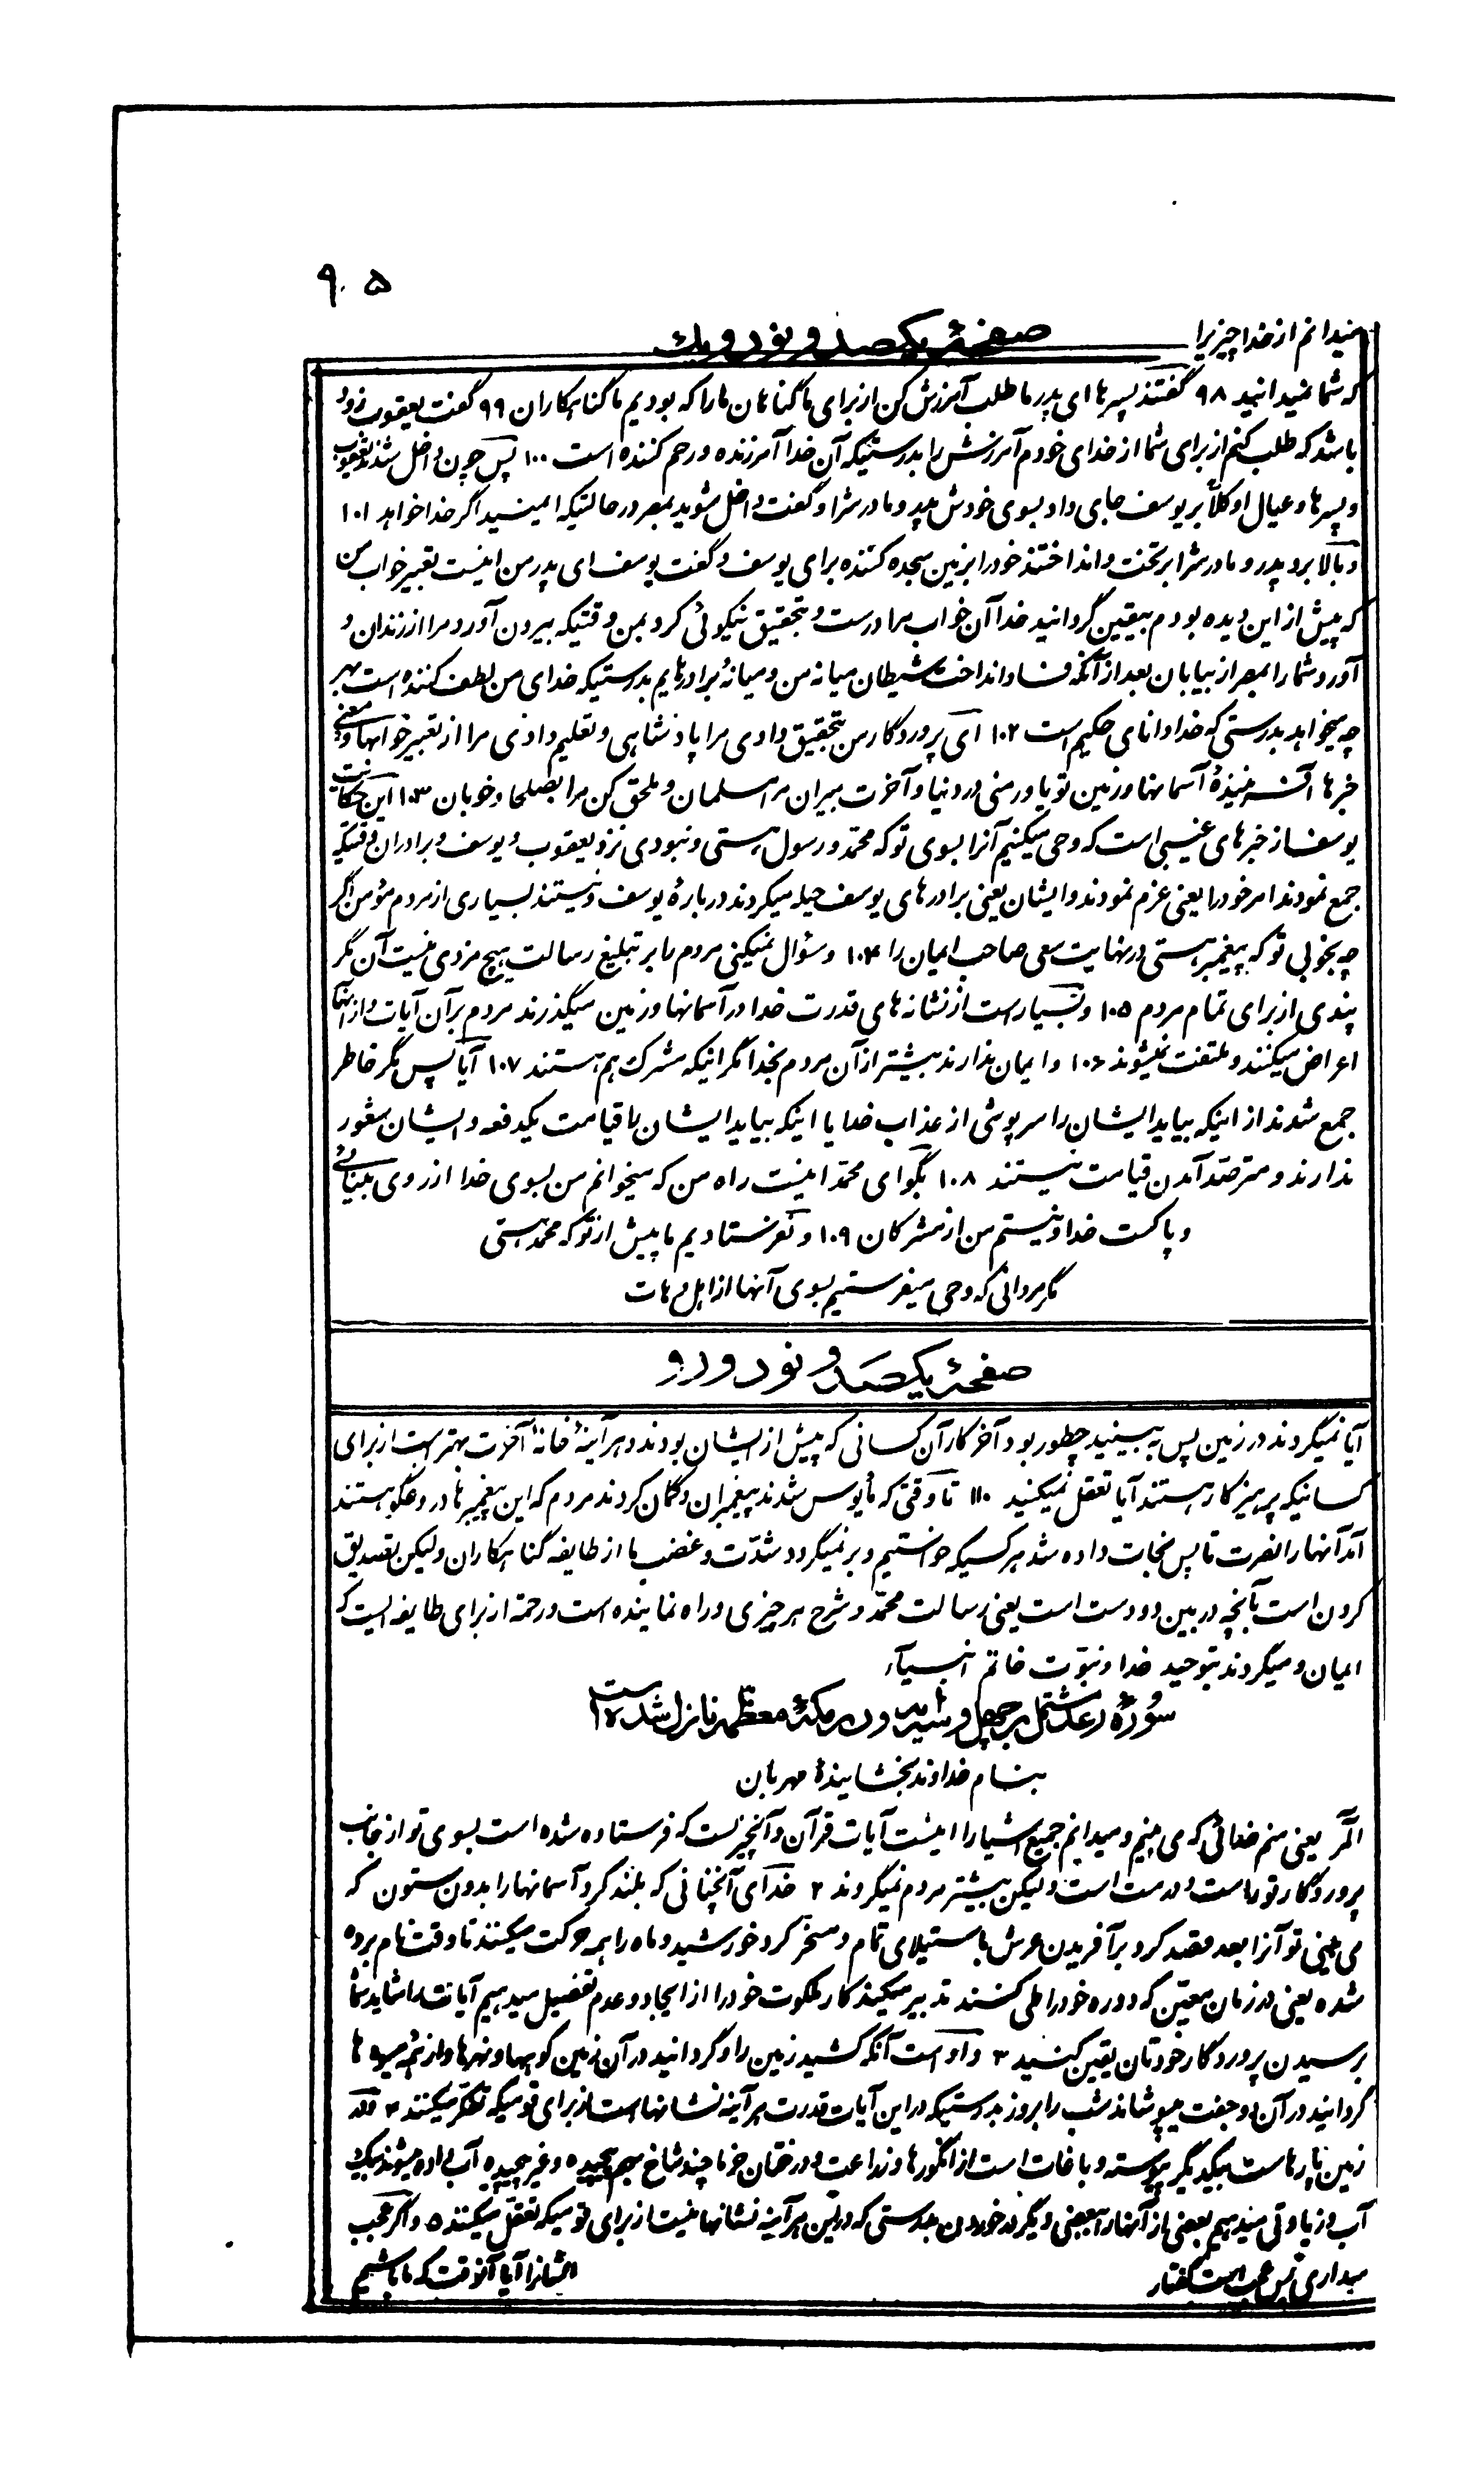 ۹۰۵
صفحهٔ یکصد و نود و یک
میدانم از خدا چیزیرا
که شما نمیدانید ۹۸ گفتند پسرها ای پدر ما طلب آمرزش کن از برای ما گناهان ما را که بودیم ما گناهکاران ۹۹ گفت یعقوب زود
باشد که طلب کنم از برای شما از خدای خودم آمرزش را بدرستیکه آن خدا آمرزنده و رحم کننده است ۱۰۰ پس چون داخل شدند یعقوب
و پسرها و عیال او کلاً بر یوسف جای داد بسوی خودش پدر و مادرش را و گفت داخل شوید بمصر در حالتیکه ایمنید اگر خدا خواهد ۱۰۱
و بالا برد پدر و مادرش را بر تخت و انداختند خود را بزمین سجده کننده برای یوسف و گفت یوسف ای پدر من اینست تعبیر خواب من
که پیش از این دیده بودم بیقین گردانید خدا آن خواب مرا درست و بتحقیق نیکوئی کرد بمن وقتیکه بیرون آورد مرا از زندان و
آورد شما را بمصر از بیابان بعد از آنکه فساد انداخت شیطان میانه من و میانهٔ برادرهایم بدرستیکه خدای من لطف کننده است بهر
چه میخواهد بدرستی که خدا دانای حکیم است ۱۰۲ ای پروردگار من بتحقیق دادی مرا پادشاهی و تعلیم دادی مرا از تعبیر خوابها و معنی
خبرها آفریننیدهٔ آسمانها و زمین تو یاور منی در دنیا و آخرت بمیران مرا مسلمان و ملحق کن مرا بصلحا و خوبان ۱۰۳ این حکایت
یوسف از خبرهای غیبی است که وحی میکنیم آنرا بسوی تو که محمد و رسول هستی و نبودی نزد یعقوب و یوسف و برادران وقتیکه
جمع نمودند امر خود را یعنی عزم نمودند و ایشان یعنی برادرهای یوسف حیله میکردند دربارهٔ یوسف و نیستند بسیاری از مردم مؤمن اگر
چه بخوبی تو که پیغمبر هستی در نهایت سعی صاحب ایمان را ۱۰۴ و سؤال نمیکنی مردم را بر تبلیغ رسالت هیچ مزدی نیست آن مگر
پندی از برای تمام مردم ۱۰۵ و بسیار است از نشانه‌های قدرت خدا در آسمانها و زمین میگذرند مردم بر آن آیات و از آنها
اعراض میکنند و ملتفت نمیشوند ۱۰۶ و ایمان ندارند بیشتر از آن مردم بخدا مگر اینکه مشرک هم هستند ۱۰۷ آیا پس مگر خاطر
جمع شدند از اینکه بیاید ایشان را سرپوشی از عذاب خدا یا اینکه بیاید ایشان را قیامت یکدفعه و ایشان شعور
ندارند و مترصد آمدن قیامت نیستند ۱۰۸ بگو ای محمد اینست راه من که میخوانم من بسوی خدا از روی بینائی
و پاکست خدا و نیستم من از مشرکان ۱۰۹ و نفرستادیم ما پیش از تو که محمد هستی
مگر مردانی که وحی میفرستیم بسوی آنها از اهل دهات
صفحهٔ یکصد و نود و دو
آیا نمیگردند در زمین پس ببینید چطور بود آخر کار آن کسانی که پیش از ایشان بودند و هر آینهٔ خانهٔ آخرت بهتر است از برای
کسانیکه پرهیزکار هستند آیا تعقل نمیکنید ۱۱۰ تا وقتی که مأیوس شدند پیغمبران و گمان کردند مردم که این پیغمبرها دروغگو هستند
آمد آنها را نصرت تا پس نجات داده شد هر کسیکه خواستیم و بر نمیگردد شدّت و غضب ما از طایفه گناهکاران ولیکن تصدیق
کردن است بآنچه در بین دو دست است یعنی رسالت محمّد و شرح هر چیزی و راه نماینده است و رحمة از برای طایفه ایست که
ایمان و میگروند بتوحید خدا و نبوّت خاتم انبیآء
سُورهٔ رعد مشتمل بر چهل و سه آیه و در مکهٔ معظمه نازل شده است
بنام خداوند بخشایندهٔ مهربان
الٓمٓر یعنی منم خدائی که می بینم و میدانم جمیع اشیا را اینست آیات قرآن و آنچیزیست که فرستاده شده است بسوی تو از جانب
پروردگار تو راست و درست است ولیکن بیشتر مردم نمیگروند ۲ خدای آنچنانی که بلند کرد آسمانها را بدون ستون که
می بینی تو آنرا بعد قصد کرد بر آفریدن عرش باستیلای تمام و مسخّر کرد خورشید و ماه را همه حرکت میکنند تا وقت نام برده
شده یعنی در زمان معیّن که دوره خود را طی کنند تدبیر میکند کار ملکوت خود را از ایجاد و عدم تفضیل میدهیم آیات را شاید شما
برسیدن پروردگار خودتان یقین کنید ۳ و او است آنکه کشید زمین را و گردانید در آن زمین کوهها و نهرها و از همه میوه ها
گردانید در آن دو جفت میپوشاند شب را بروز بدرستیکه در این آیات قدرت هر آینه نشانها است از برای قومیکه تفکر میکنند ۴ و در
زمین پارهاست بیکدیگر پیوسته و باغات است از انگورها و زراعت و درختان خرما چند شاخ بهم پیچیده و غیر پیچیده آب داده میشوند بیک
آب و زیادتی میدهیم بعضی از آنها را ببعضی دیگر در خوردن بدرستی که در این هر آینه نشانهائیست از برای قومیکه تعقل میکنند ۵ و اگر عجب
میداری پس عجب است گفتار ایشانرا آیا آنوقت که ما باشیم